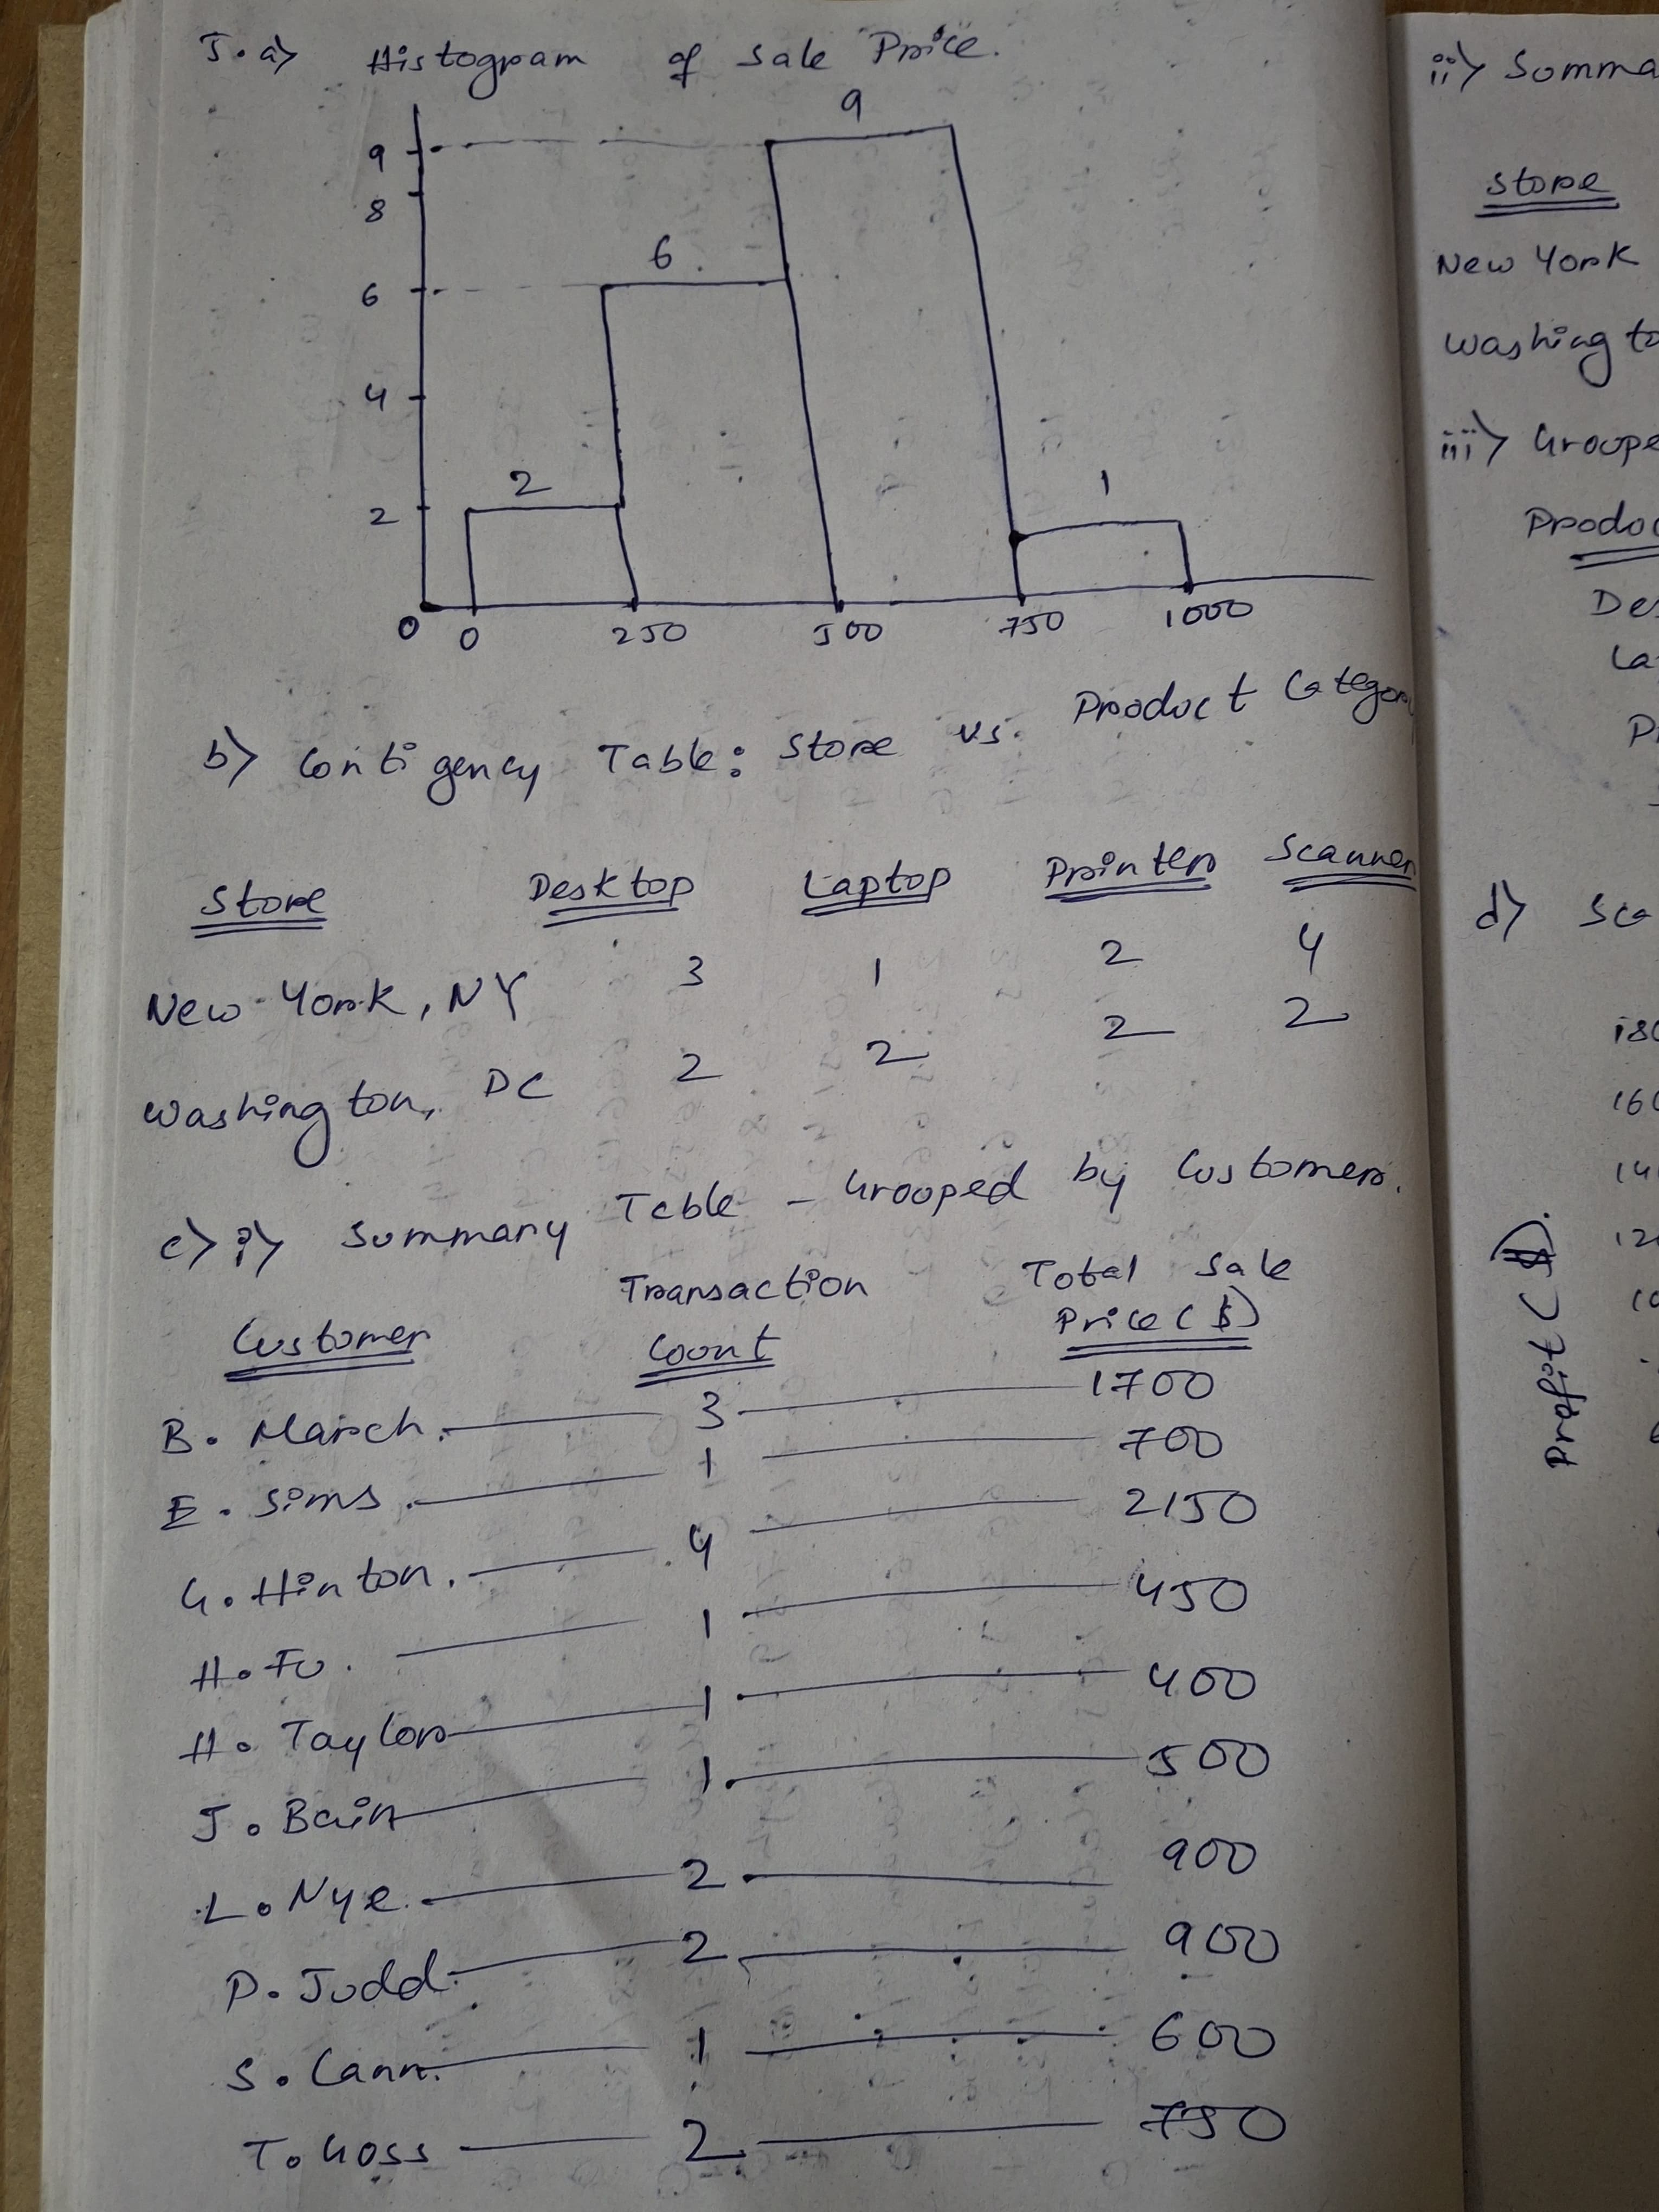 5. a) Histogram of Sale Price.
9
9
8
6
6
4
2
2
1
0 0 250 500 750 1000
b) Contigency Table: Store vs. Product Category
Store Desktop Laptop Printer Scanner
New York, NY 3 1 2 4
Washington, DC 2 2 2 2
c) i) Summary Table - Grouped by Customer.
Customer Transaction Count Total Sale Price ($)
B. March. 3 1700
E. Sims. 1 700
G. Hinton. 4 2150
H. Fu. 1 450
H. Taylor 1 400
J. Bain 1 500
L. Nye. 2 900
P. Judd. 2 900
S. Cann. 1 600
T. Goss 2 750
ii) Summa
Store
New York
Washingto
iii) Groupe
Produc
Des
La
P
d) Sca
180
160
14
12
10
Profit ($).